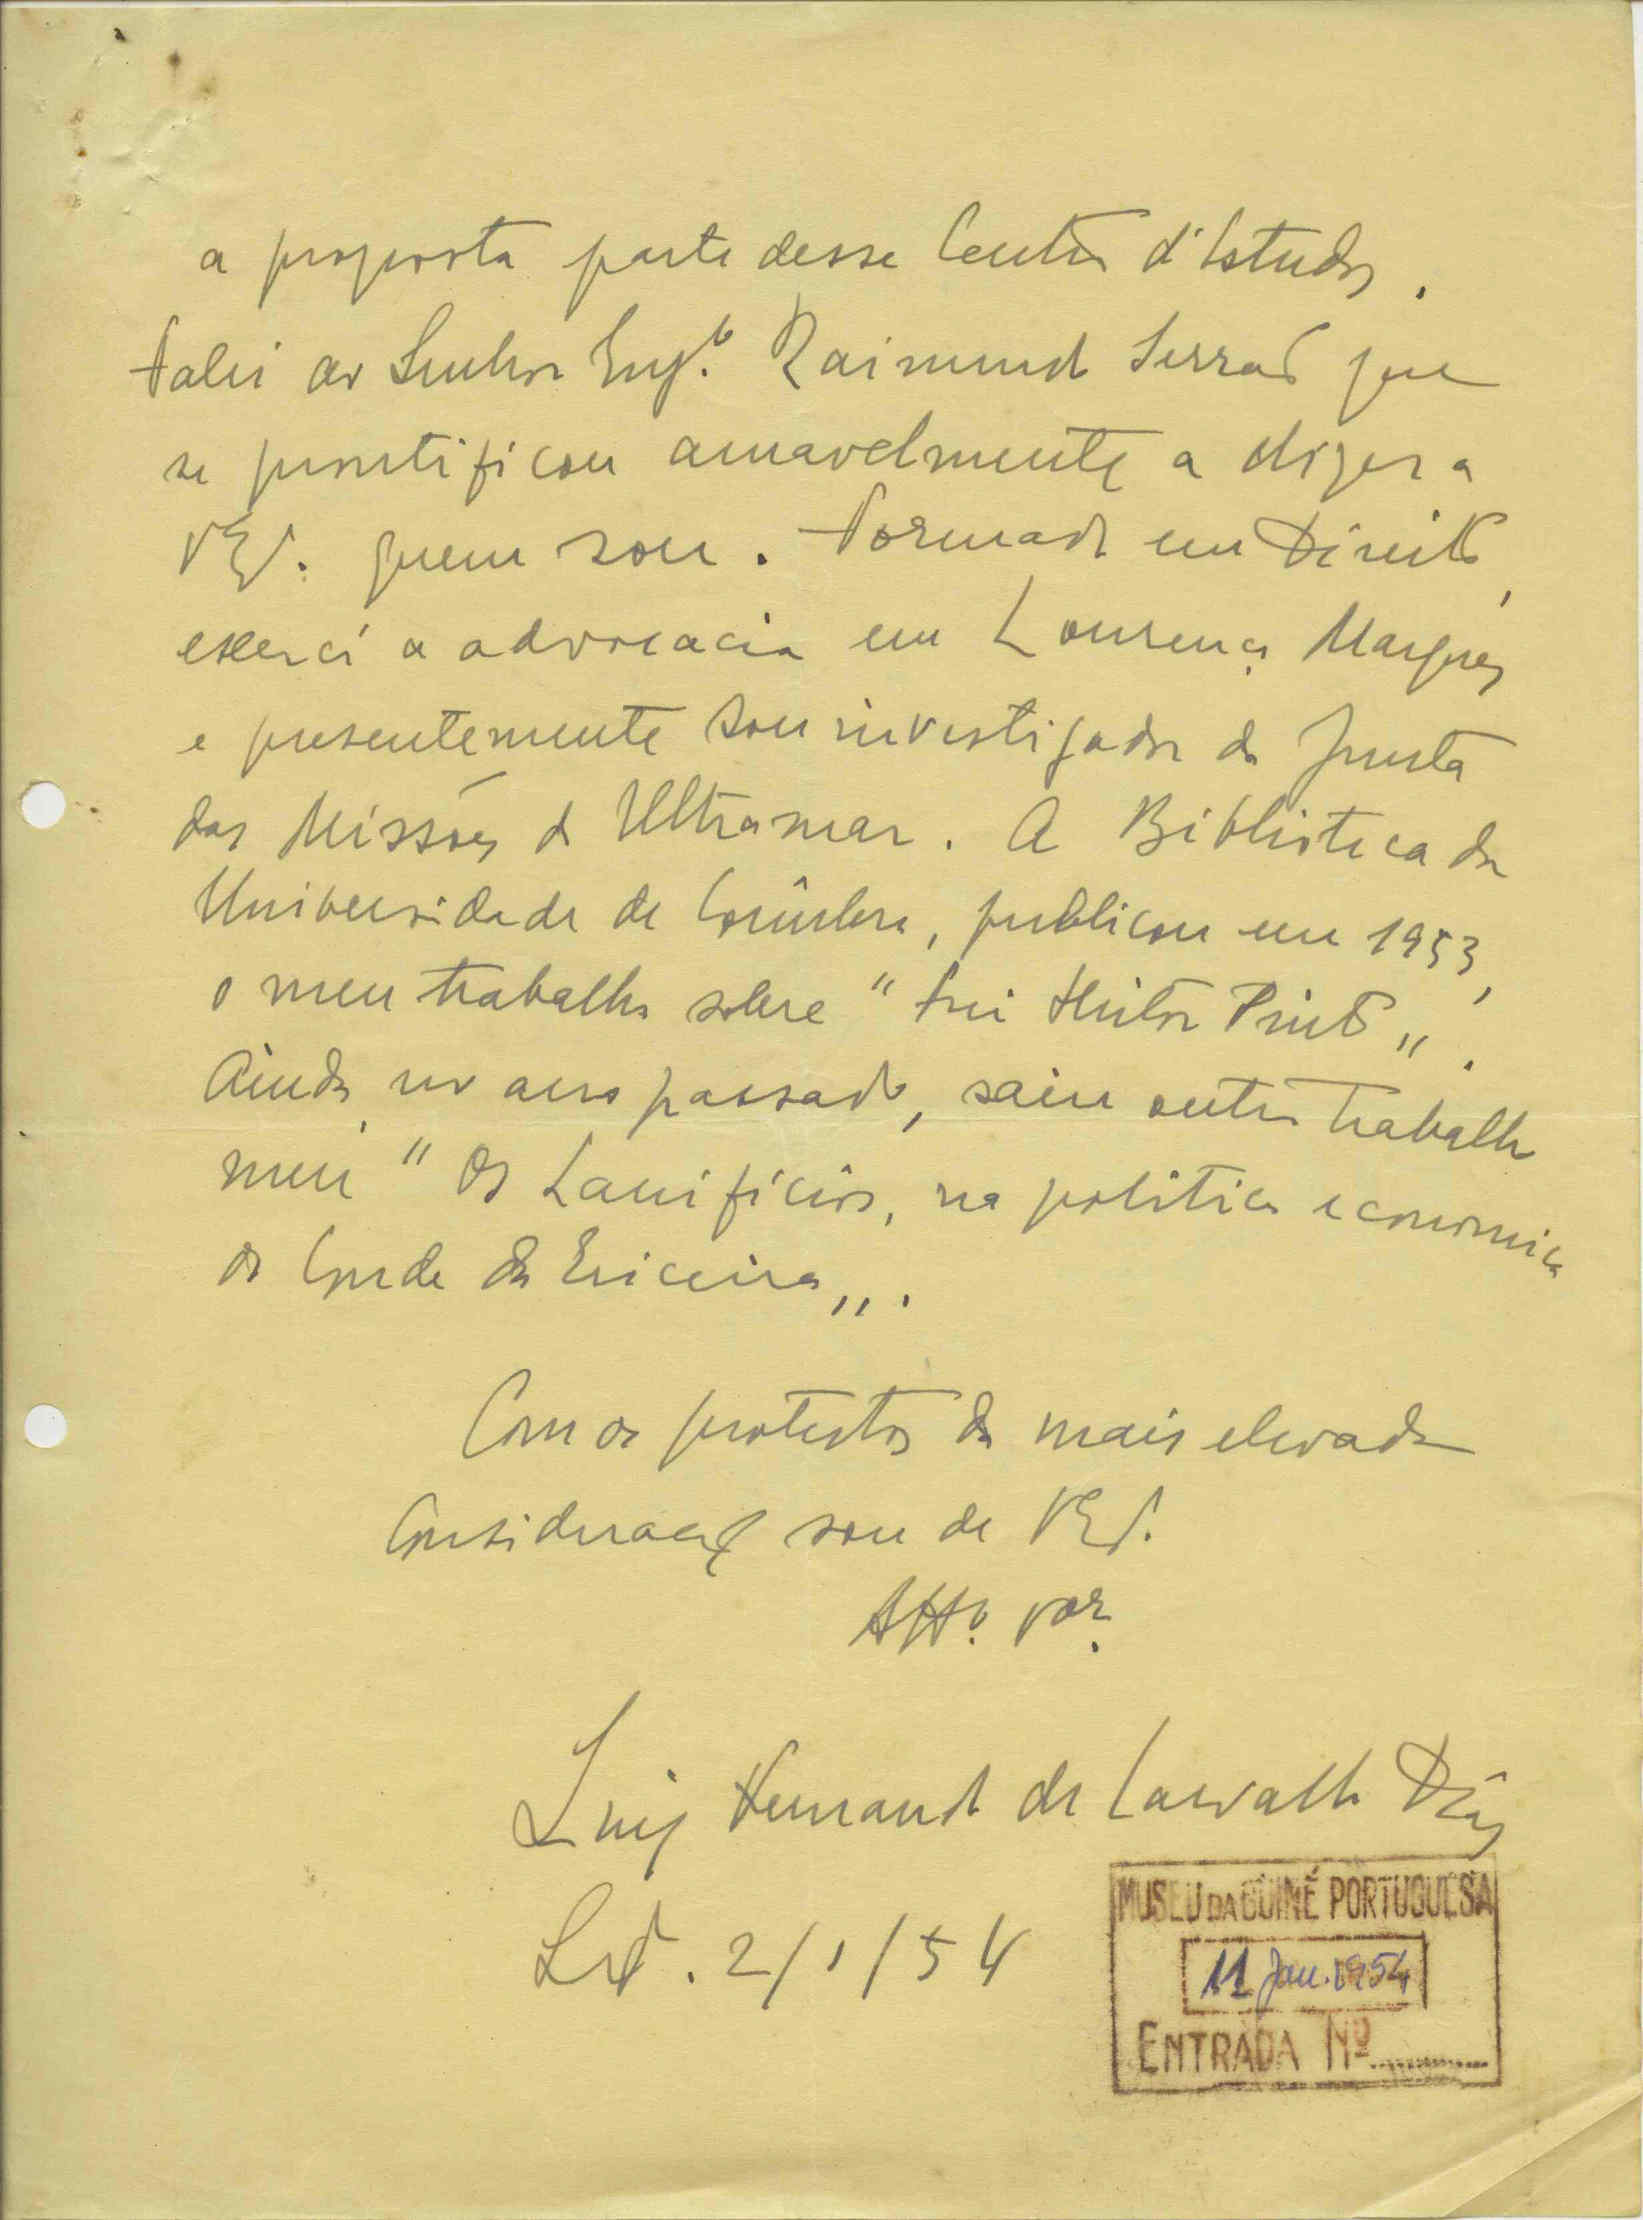 a proposta parte desse Centro d'Estudos.
Falei ao Senhor Eng.º Raimundo Serrão que
se prontificou amavelmente a dizer a
V Ex.ª quem sou. Formado em Direito,
exerci a advocacia em Lourenço Marques
e presentemente sou investigador da Junta
das Missões do Ultramar. A Biblioteca da
Universidade de Coimbra, publicou em 1953,
o meu trabalho sobre "Frei Heitor Pinto".
Ainda no ano passado, saiu outro trabalho
meu "Os Lanifícios, na politica economica
do Conde da Ericeira".
Com os protestos da mais elevada
Consideração sou de V Ex.ª
Att.º vor.
Luiz Fernando de Carvalho Dias
Lx.ª. 2/1/54
MUSEU DA GUINÉ PORTUGUESA
11 Jan. 1954
ENTRADA Nº